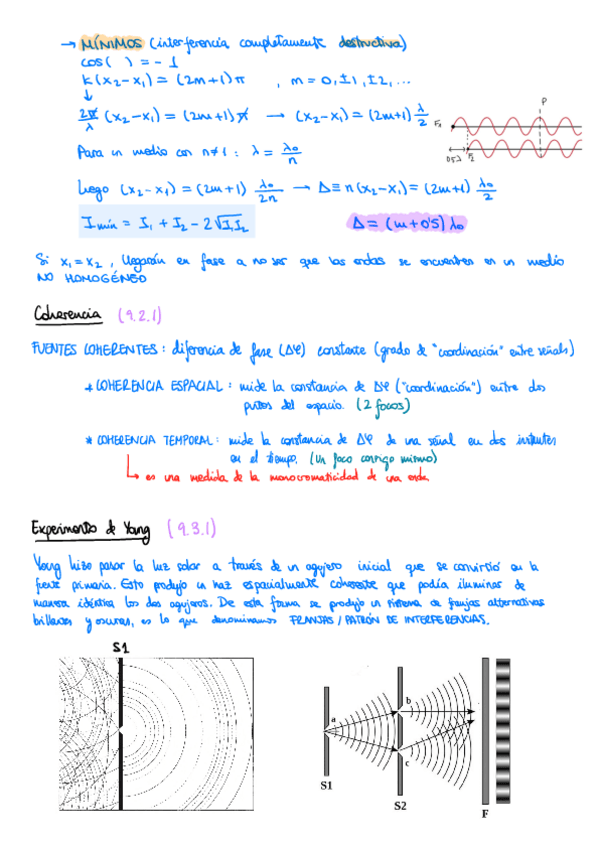 → MÍNIMOS (interferencia completamente destructiva)
cos( ) = - 1
k(x₂-x₁) = (2m+1)π , m = 0, ±1, ±2, ...
↓
2π/λ (x₂-x₁) = (2m+1)π → (x₂-x₁) = (2m+1) λ/2
P
F₁
F₂
0'5λ
Para un medio con n≠1 : λ = λ₀/n
Luego (x₂-x₁) = (2m+1) λ₀/2n → Δ ≡ n(x₂-x₁) = (2m+1) λ₀/2
Imín = I₁ + I₂ - 2√I₁I₂
Δ = (m+0'5) λ₀
Si x₁ = x₂ , llegarán en fase a no ser que las ondas se encuentren en un medio
NO HOMOGÉNEO
Coherencia (9.2.1)
FUENTES COHERENTES : diferencia de fase (Δφ) constante (grado de "coordinación" entre señales)
* COHERENCIA ESPACIAL : mide la constancia de Δφ ("coordinación") entre dos
puntos del espacio. (2 focos)
* COHERENCIA TEMPORAL : mide la constancia de Δφ de una señal en dos instantes
en el tiempo. (Un foco consigo mismo)
↳ es una medida de la monocromaticidad de una onda
Experimento de Young (9.3.1)
Young hizo pasar la luz solar a través de un agujero inicial que se convirtió en la
fuente primaria. Esto produjo un haz espacialmente coherente que podía iluminar de
manera idéntica los dos agujeros. De esta forma se produjo un sistema de franjas alternativas
brillantes y oscuras, es lo que denominamos FRANJAS / PATRÓN DE INTERFERENCIAS.
S1
a
b
c
S1
S2
F